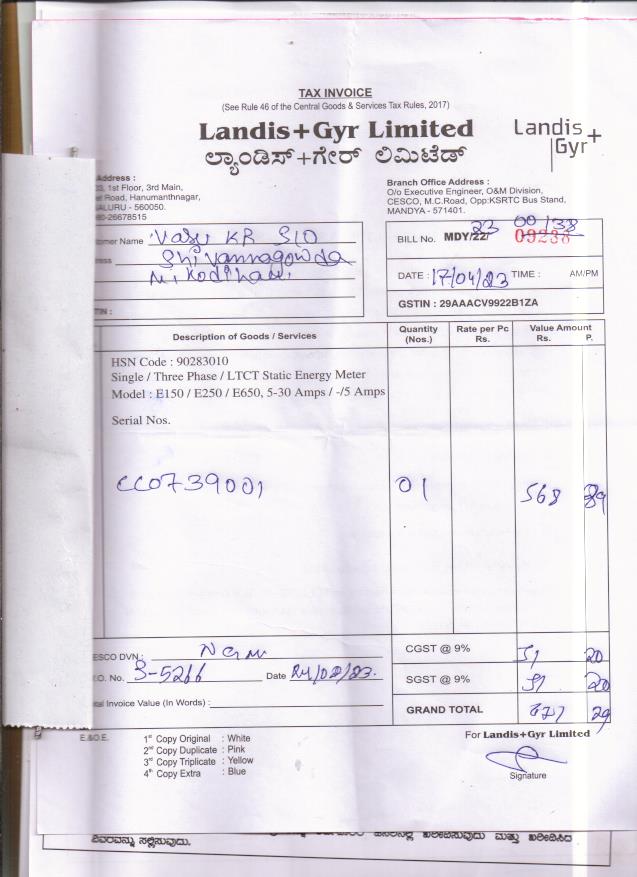 TAX INVOICE
(See Rule 46 of the Central Goods & Services Tax Rules, 2017)
Landis+Gyr Limited
ಲ್ಯಾಂಡಿಸ್+ಗೇರ್ ಲಿಮಿಟೆಡ್
Landis+
Gyr
Address :
1st Floor, 3rd Main,
Road, Hanumanthnagar,
ALURU - 560050.
-26678515
Branch Office Address :
O/o Executive Engineer, O&M Division,
CESCO, M.C.Road, Opp:KSRTC Bus Stand,
MANDYA - 571401.
omer Name Vasu KR S/O
ress Shivannagowda
BILL No. MDY/22/ 23 00/38
09238
DATE : 17/04/23 TIME : AM/PM
TIN :
GSTIN : 29AAACV9922B1ZA
Description of Goods / Services
Quantity (Nos.)
Rate per Pc Rs.
Value Amount Rs. P.
HSN Code : 90283010
Single / Three Phase / LTCT Static Energy Meter
Model : E150 / E250 / E650, 5-30 Amps / -/5 Amps
Serial Nos.
CC0739001 01 568 89
ESCO DVN :
CGST @ 9% 51 20
.O. No. S-5266 Date 24/02/23.
SGST @ 9% 51 20
al Invoice Value (In Words) :
GRAND TOTAL 671 29
E.&O.E.
1st Copy Original : White
2nd Copy Duplicate : Pink
3rd Copy Triplicate : Yellow
4th Copy Extra : Blue
For Landis+Gyr Limited
Signature
ವಿವರವನ್ನು ಸಲ್ಲಿಸುವುದು. ಖರೀದಿಸುವುದು ಮತ್ತು ಖರೀದಿಸಿದ